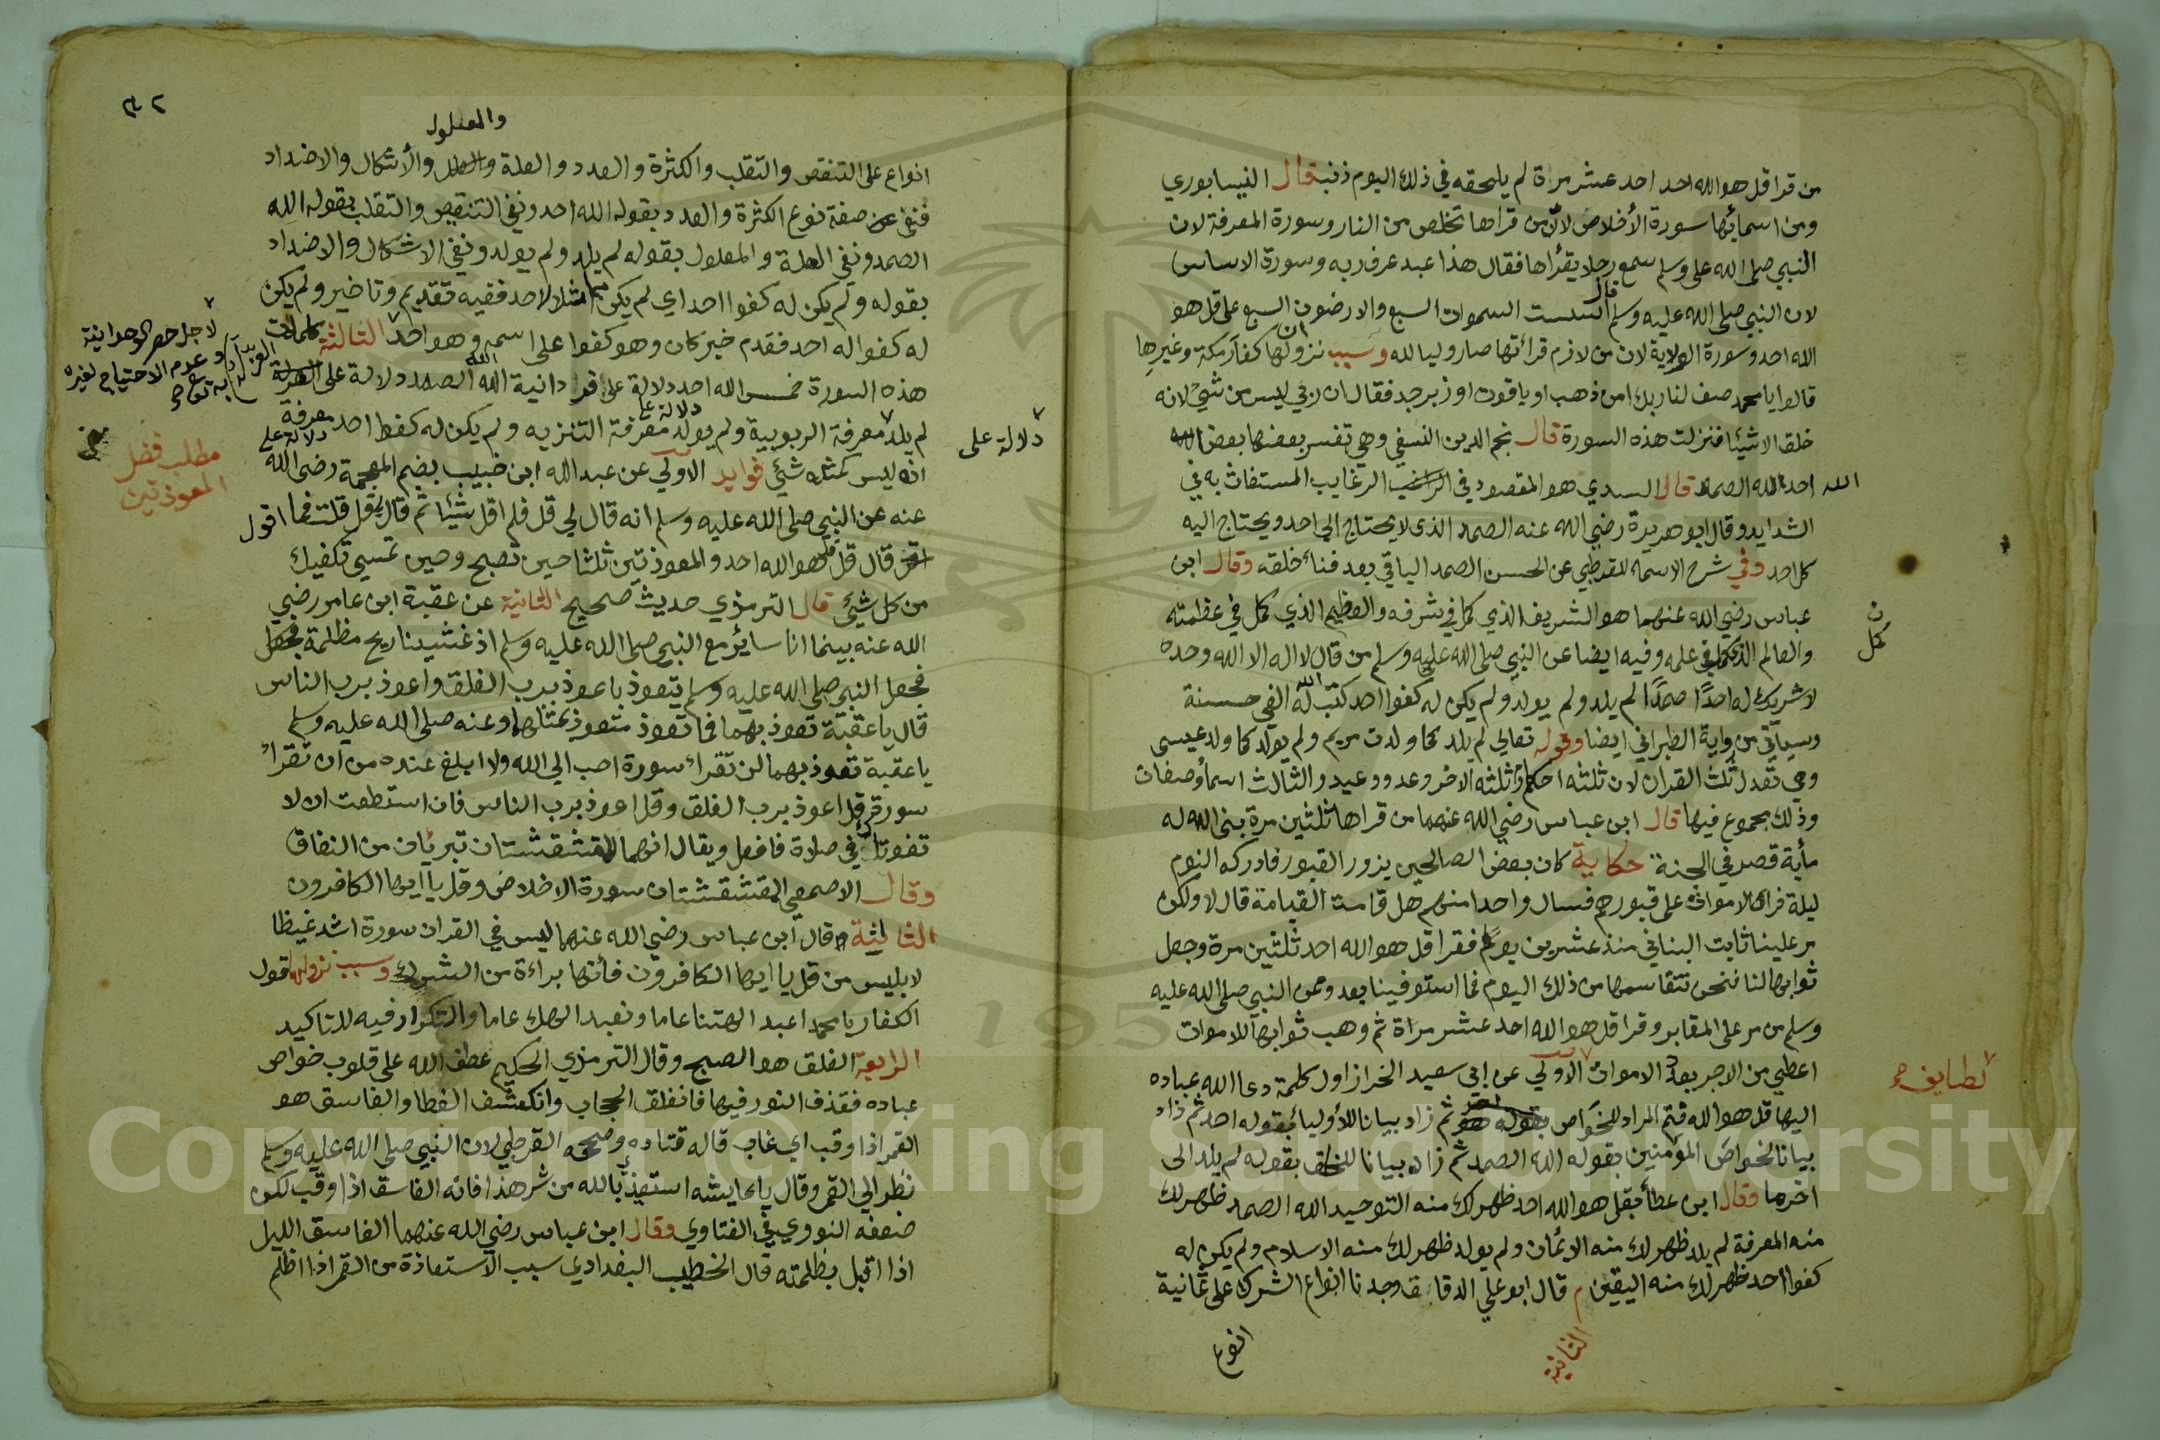 من قرا قل هو الله احد احد عشر مراة لم يلحقه في ذلك اليوم ذنب قال النيسابوري
ومن اسمائها سورة الأخلاص لأن من قراها تخلص من النار وسورة المعرفة لان
النبي صلى الله على وسلم سمع رجلا يقرأها فقال هذا عبد عرف ربه وسورة الاساس
لان النبي صلى الله عليه وسلم قال اسست السموات السبع والارضون السبع على قل هو
الله احد وسورة الولاية لان من لازم قرائتها صار وليا لله وسبب نزولها ان كفار مكة وغيرها
قالوا يا محمد صف لنا ربك امن ذهب او ياقوت او زبرجد فقال ان ربي ليس من شيئ لانه
خلق الاشيئا فنزلت هذه السورة قال نجم الدين النسفي وهي تفسر بعضها بعض
الله احد الله الصمد قال السدي هو المقصود في الرغايب المستغاث به في
الشدايد وقال ابو هريرة رضي الله عنه الصمد الذى لا يحتاج الى احد ويحتاج اليه
كل احد وفي شرح الاسماء للقرطبي عن الحسن الصمد الباقي بعد فناء خلقه وقال ابن
عباس رضي الله عنهما هو الشريف الذي كمل في شرفه والعظيم الذي كمل في عظمته
ن
كمل
والعالم الذي كمل في علمه وفيه ايضا عن النبي صلى الله عليه وسلم من قال لا اله الا الله وحده
لا شريك له احدًا صمدًا لم يلد ولم يولد ولم يكن له كفوا احد كتب الله له الفي حسنة
وسياتي من رواية الطبراني ايضا وقوله تعالى لم يلد كما ولدت مريم ولم يولد كما ولد عيسى
وهي تعدل ثلث القران لان ثلثه احكام وثلثه الاخر وعد ووعيد والثالث اسماء وصفات
وذلك مجموع فيها قال ابن عباس رضي الله عنهما من قراها ثلثين مرة بنى الله له
مأية قصر في الجنة حكاية كان بعض الصالحين يزور القبور فادركه النوم
ليلة فراى الاموات على قبورهم فسال واحدا منهم هل قامت القيامة قال لا ولكن
مر علينا ثابت البناني منذ عشرين يوما فقرا قل هو الله احد ثلثين مرة وجعل
ثوابها لنا فنحن نتقاسمها من ذلك اليوم فما استوفينا بعد وعن النبي صلى الله عليه
وسلم من مر على المقابر وقرا قل هو الله احد عشر مراة ثم وهب ثوابها للاموات
لطايف
اعطي من الاجر بعدد الاموات الاولي عن ابي سعيد الخراز اول كلمة دعا الله عباده
اليها قل هو الله فتم المراد للخواص ثم زاد بيانا للأوليا بقوله احد ثم زاد
بيانا لخواص المؤمنين بقوله الله الصمد ثم زاد بيانا للخلق بقوله لم يلد الى
اخرها وقال ابن عطا بقل هو الله احد ظهر لك منه التوحيد الله الصمد ظهر لك
منه المعرفة لم يلد ظهر لك منه الايمان ولم يولد ظهر لك منه الاسلام ولم يكن له
كفوا احد ظهر لك منه اليقين قال ابو علي الدقاق وجدنا انواع الشرك على ثمانية
الثانية
انواع
والمعلول
انواع على التنقص والتقلب والكثرة والعدد والعلة والأشكال والاضداد
فنفى عن صفة نوع الكثرة والعدد بقوله الله احد ونفي التنقيص والتقلب بقوله الله
الصمد ونفي العلة والمعلول بقوله لم يلد ولم يولد ونفي الاشكال والاضداد
بقوله ولم يكن له كفوا احد اي لم يكن مماثلا لاحد ففيه تقديم وتاخير ولم يكن
له كفوا له احد فقدم خبر كان وهو كفوا على اسمه وهو احد الثالثة كلمات
لاجل حصر الوحدانية
وعدم الاحتياج لغيره
هذه السورة خمس الله احد دلالة على فردانية الله الصمد دلالة على
لم يلد معرفة الربوبية ولم يولد دلالة على معرفة التنزيه ولم يكن له كفوا احد معرفة
دلالة على
دلالة على
انه ليس كمثله شيئ فوايد الاولي عن عبد الله ابن خبيب بضم المعجمة رضى الله
مطلب فضل
المعوذتين
عنه عن النبي صلى الله عليه وسلم انه قال لي قل فلم اقل شيئا ثم قال قل قلت فما اقول
قال قل هو الله احد والمعوذتين ثلثا حين تصبح وحين تمسي تكفيك
من كل شيئ قال الترمذي حديث صحيح الثانية عن عقبة ابن عامر رضي
الله عنه بينما انا ساير مع النبي صلى الله عليه وسلم اذ غشيتنا ريح مظلمة فجعل
فجعل النبي صلى الله عليه وسلم يتعوذ باعوذ برب الفلق واعوذ برب الناس
قال يا عقبة تعوذ بهما فما تعوذ متعوذ بمثلهما وعنه صلى الله عليه وسلم
يا عقبة تعوذ بهما لن تقراء سورة احب الى الله ولا ابلغ عنده من ان تقراء
سورة قل اعوذ برب الفلق وقل اعوذ برب الناس فان استطعت ان لا
تفوتك في صلاة فافعل ويقال انهما المقشقشتان تبرئان من النفاق
وقال الاصمعي المقشقشتان سورة الاخلاص وقل يا ايها الكافرون
الثالثة قال ابن عباس رضي الله عنهما ليس في القران سورة اشد غيظا
لابليس من قل يا ايها الكافرون فأنها براءة من الشرك وسبب نزولها قول
الكفار يا محمد اعبد الهتنا عاما ونعبد الهك عاما والتكرار فيه للتاكيد
الرابعة الفلق هو الصبح وقال الترمذي الحكيم عطف الله على قلوب خواص
عباده فقذف النور فيها فانفلق الحجاب وانكشف الغطا والفاسق هو
القمر اذا وقب اي غاب قاله قتاده وصححه القرطبي لان النبي صلى الله عليه وسلم
نظر الى القمر وقال يا عايشه استعيذي بالله من شر هذا فانه الفاسق اذا وقب لكن
ضعفه النووي في الفتاوي وقال ابن عباس رضي الله عنهما الفاسق الليل
اذا اقبل بظلمته قال الخطيب البغدادي سبب الاستعاذة من القمر اذا اظلم
Copyright © King Saud University
195